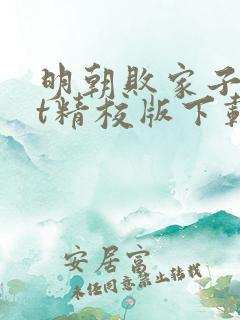 明朝败家子
t精校版下载
安居富
未经同意禁止转载